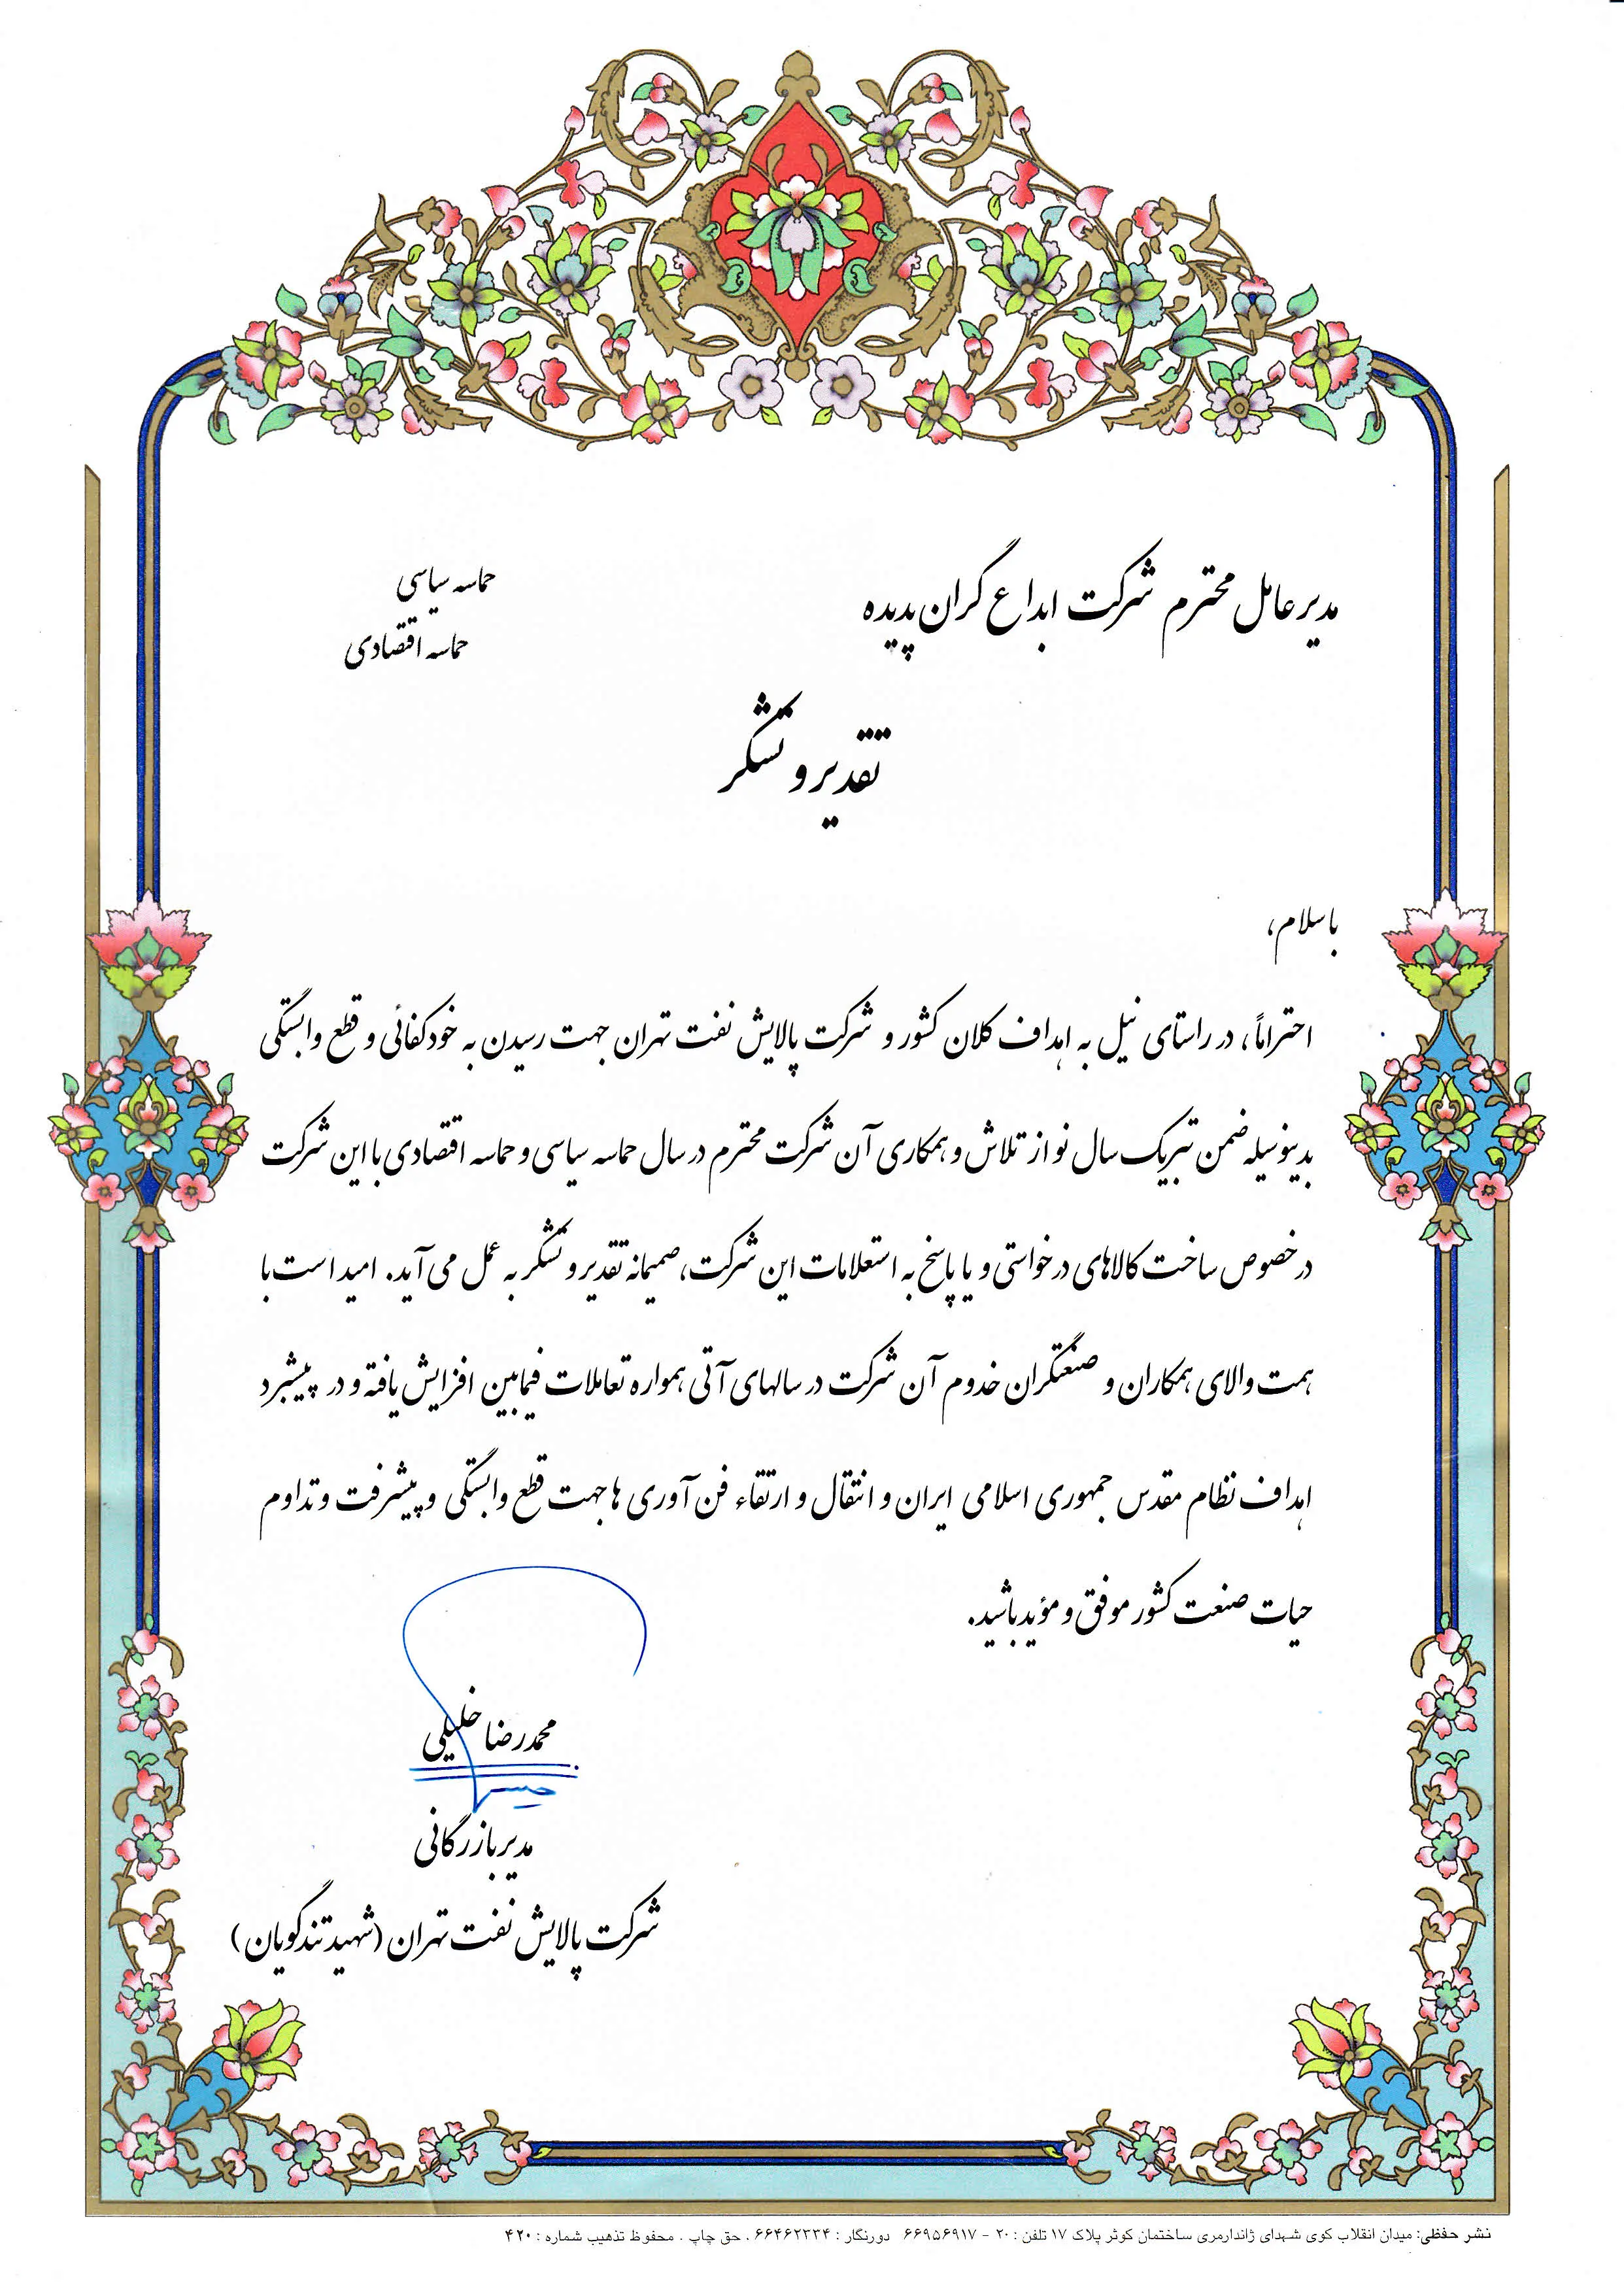 مدیر عامل محترم شرکت ابداع گران پدیده
حماسه سیاسی
حماسه اقتصادی
تقدیر و تشکر
با سلام،
احتراماً، در راستای نیل به اهداف کلان کشور و شرکت پالایش نفت تهران جهت رسیدن به خودکفائی و قطع وابستگی
بدینوسیله ضمن تبریک سال نو از تلاش و همکاری آن شرکت محترم در سال حماسه سیاسی و حماسه اقتصادی با این شرکت
در خصوص ساخت کالاهای درخواستی و یا پاسخ به استعلامات این شرکت، صمیمانه تقدیر و تشکر به عمل می آید. امید است با
همت والای همکاران و صنعتگران خدوم آن شرکت در سالهای آتی همواره تعاملات فیمابین افزایش یافته و در پیشبرد
اهداف نظام مقدس جمهوری اسلامی ایران و انتقال و ارتقاء فن آوری ها جهت قطع وابستگی و پیشرفت و تداوم
حیات صنعت کشور موفق و مؤید باشید.
محمدرضا خلیلی
مدیر بازرگانی
شرکت پالایش نفت تهران (شهید تندگویان)
نشر حفظی: میدان انقلاب کوی شهدای ژاندارمری ساختمان کوثر پلاک ۱۷ تلفن : ۲۰ - ۶۶۹۵۶۹۱۷ دورنگار : ۶۶۴۶۲۳۳۴ . حق چاپ . محفوظ تذهیب شماره : ۴۲۰